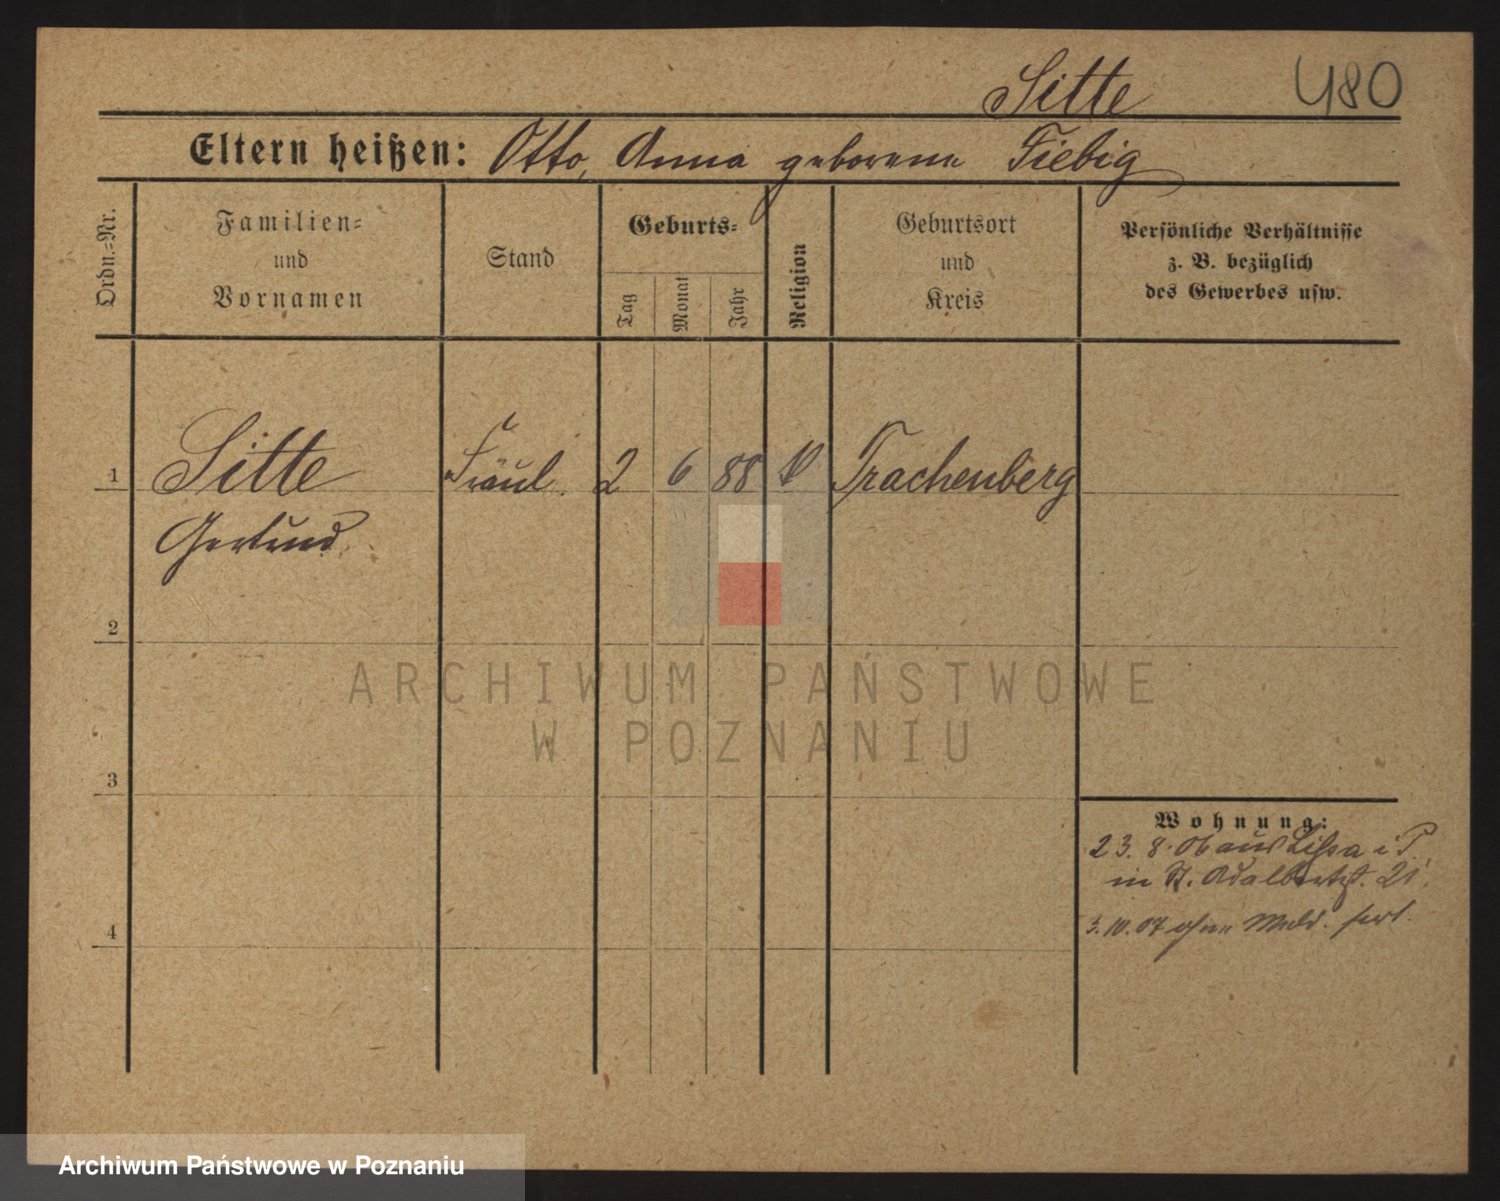 Sitte 480
Eltern heißen: Otto, Anna geborene Fiebig
Ordn.-Nr.
Familien-
und
Vornamen
Stand
Geburts-
Tag
Monat
Jahr
Religion
Geburtsort
und
Kreis
Persönliche Verhältnisse
z. B. bezüglich
des Gewerbes usw.
1 Sitte Fräul. 2 6 88 Trachenberg
Gertrud
2
3
4
Wohnung:
23. 8. 06 aus Lissa i P.
in St. Adalbertst. 21.
3. 10. 07 ohne Meld. fort.
ARCHIWUM PAŃSTWOWE
W POZNANIU
Archiwum Państwowe w Poznaniu